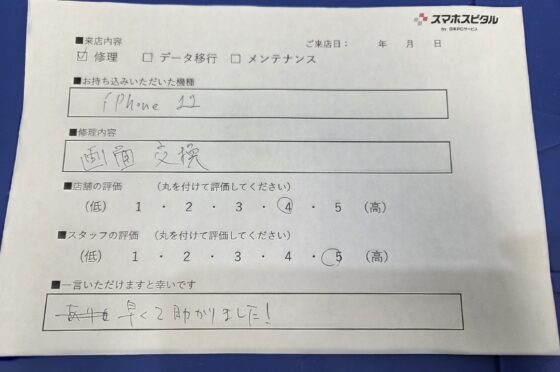 スマホスピタル
by 日本PCサービス
■来店内容
ご来店日： 年 月 日
☑ 修理 □ データ移行 □ メンテナンス
■お持ち込みいただいた機種
iPhone 11
■修理内容
画面 交換
■店舗の評価 （丸を付けて評価してください）
（低） 1 ・ 2 ・ 3 ・ 4 ・ 5 （高）
■スタッフの評価 （丸を付けて評価してください）
（低） 1 ・ 2 ・ 3 ・ 4 ・ 5 （高）
■一言いただけますと幸いです
早くて助かりました!